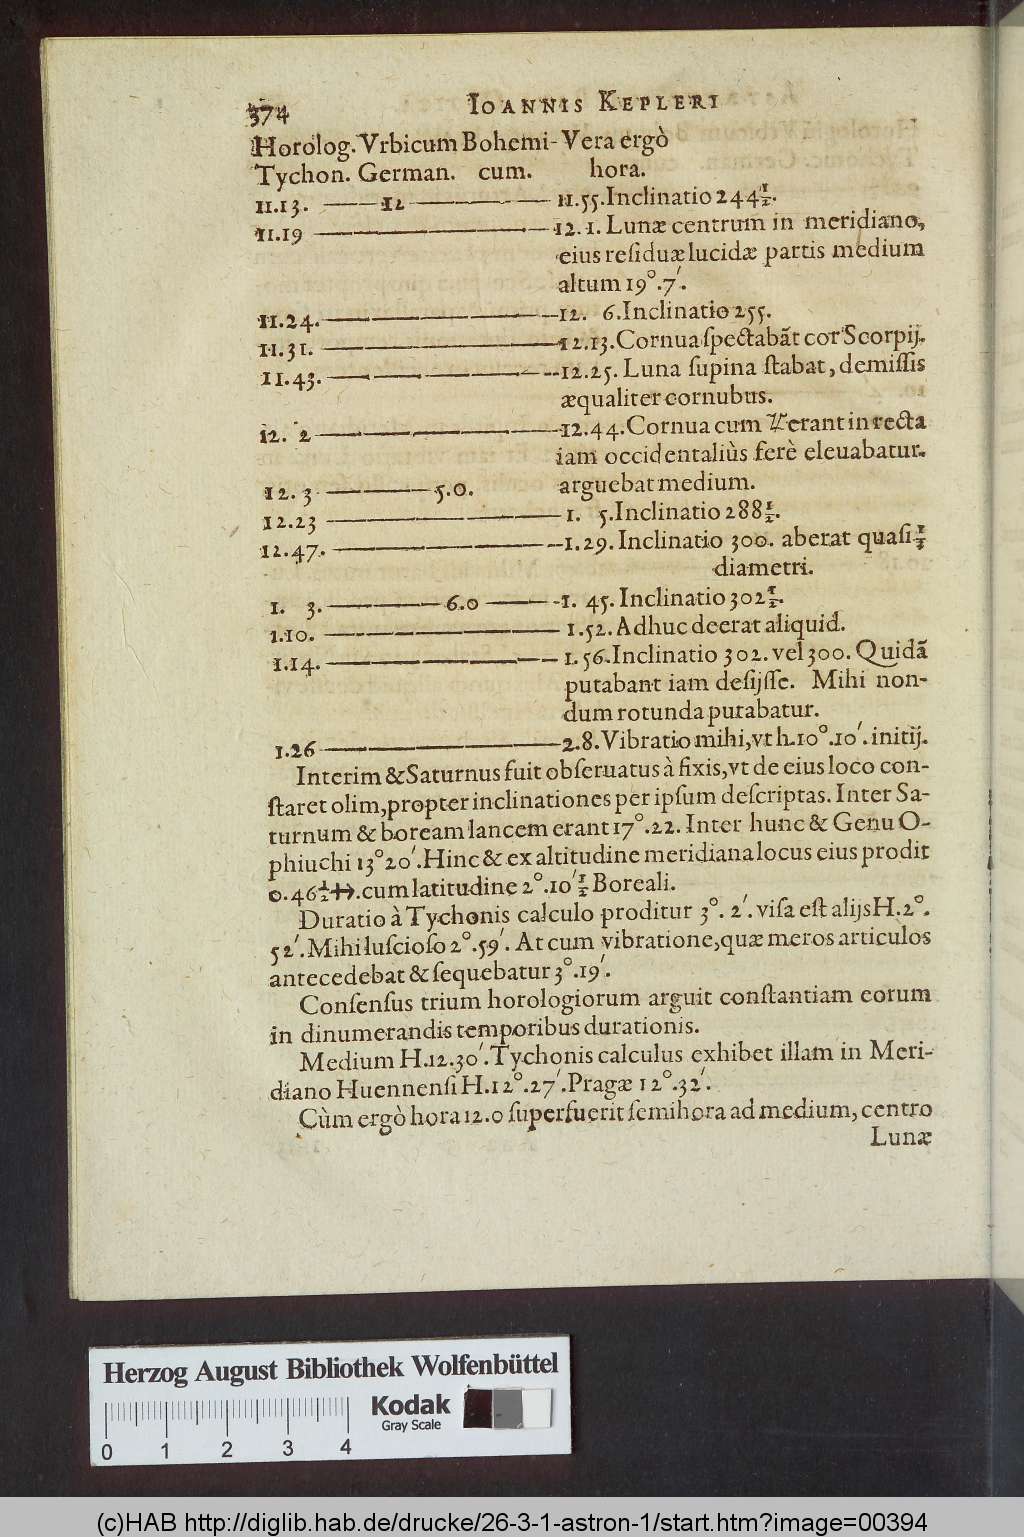 374 IOANNIS KEPLERI
Horolog. Vrbicum Bohemi- Vera ergò
Tychon. German. cum. hora.
11.13. —— 12 —— 11.55. Inclinatio 244½.
11.19 —— 12.1. Lunæ centrum in meridiano,
eius reſiduæ lucidæ partis medium
altum 19°.7′.
11.24. —— 12. 6. Inclinatio 255.
11.31. —— 12.13. Cornua ſpectabãt cor Scorpij.
11.43. —— 12.25. Luna ſupina ſtabat, demiſſis
æqualiter cornubus.
12. 2 —— 12.44. Cornua cum ♃ erant in recta
iam occidentaliùs ferè eleuabatur.
12. 3 —— 5.0. arguebat medium.
12.23 —— 1. 5. Inclinatio 288½.
12.47. —— 1.29. Inclinatio 300. aberat quaſi
diametri.
1. 3. —— 6.0 —— 1. 45. Inclinatio 302½.
1.10. —— 1.52. Adhuc deerat aliquid.
1.14. —— 1.56. Inclinatio 302. vel 300. Quidã
putabant iam deſijſſe. Mihi non-
dum rotunda putabatur.
1.26 —— 2.8. Vibratio mihi, vt h. 10°.10′. initij.
Interim & Saturnus fuit obſeruatus à fixis, vt de eius loco con-
ſtaret olim, propter inclinationes per ipſum deſcriptas. Inter Sa-
turnum & boream lancem erant 17°.22. Inter hunc & Genu O-
phiuchi 13°20′. Hinc & ex altitudine meridiana locus eius prodit
0.46½ ♐. cum latitudine 2°.10′½ Boreali.
Duratio à Tychonis calculo proditur 3°. 2′. viſa eſt alijs H. 2°.
52′. Mihi luſcioſo 2°.59′. At cum vibratione, quæ meros articulos
antecedebat & ſequebatur 3°.19′.
Conſenſus trium horologiorum arguit conſtantiam eorum
in dinumerandis temporibus durationis.
Medium H. 12.30′. Tychonis calculus exhibet illam in Meri-
diano Huennenſi H. 12°.27′. Pragæ 12°.32′.
Cùm ergò hora 12.0 ſuperfuerit ſemihora ad medium, centro
Lunæ
Herzog August Bibliothek Wolfenbüttel
Kodak
Gray Scale
0 1 2 3 4
(c)HAB http://diglib.hab.de/drucke/26-3-1-astron-1/start.htm?image=00394